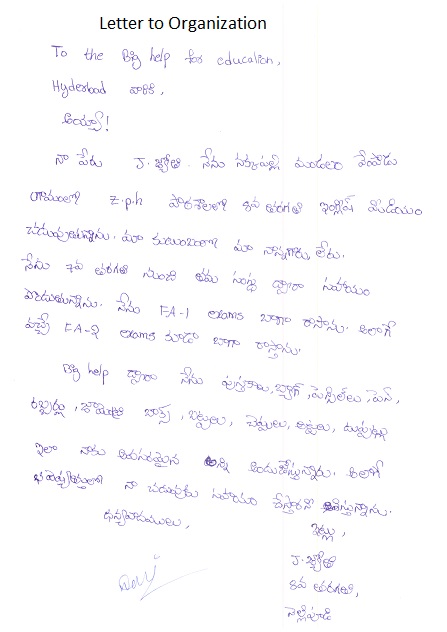 Letter to Organization
To the Big help for education,
Hyderbad వారికి,
అయ్యా!
నా పేరు J. జ్యోతి. నేను నక్కపల్లి మండలం వేంపాడు
గ్రామంలో z.p.h పాఠశాలలో 8వ తరగతి ఇంగ్లీష్ మీడియం
చదువుతున్నాను. మా కుటుంబంలో మా నాన్నగారు లేరు.
నేను 7వ తరగతి నుంచి తమ సంస్థ ద్వారా సహాయం
పొందుతున్నాను. నేను FA-1 exams బాగా రాసాను. అలాగే
వచ్చే FA-2 exams కూడా బాగా రాస్తాను.
Big help ద్వారా నేను పుస్తకాలు, బ్యాగ్, పెన్సిల్‌లు, పెన్,
రబ్బర్లు, జామెట్రీ బాక్స్, బట్టలు, చెప్పులు, అట్టలు, దుప్పట్లు
ఇలా నాకు అవసరమైన అన్ని అందుతున్నాయి. అలాగే
భవిష్యత్తులో నా చదువుకు సహాయం చేస్తారని ఆశిస్తున్నాను.
ధన్యవాదములు,
ఇట్లు,
J. జ్యోతి
8వ తరగతి,
నెల్లిపూడి